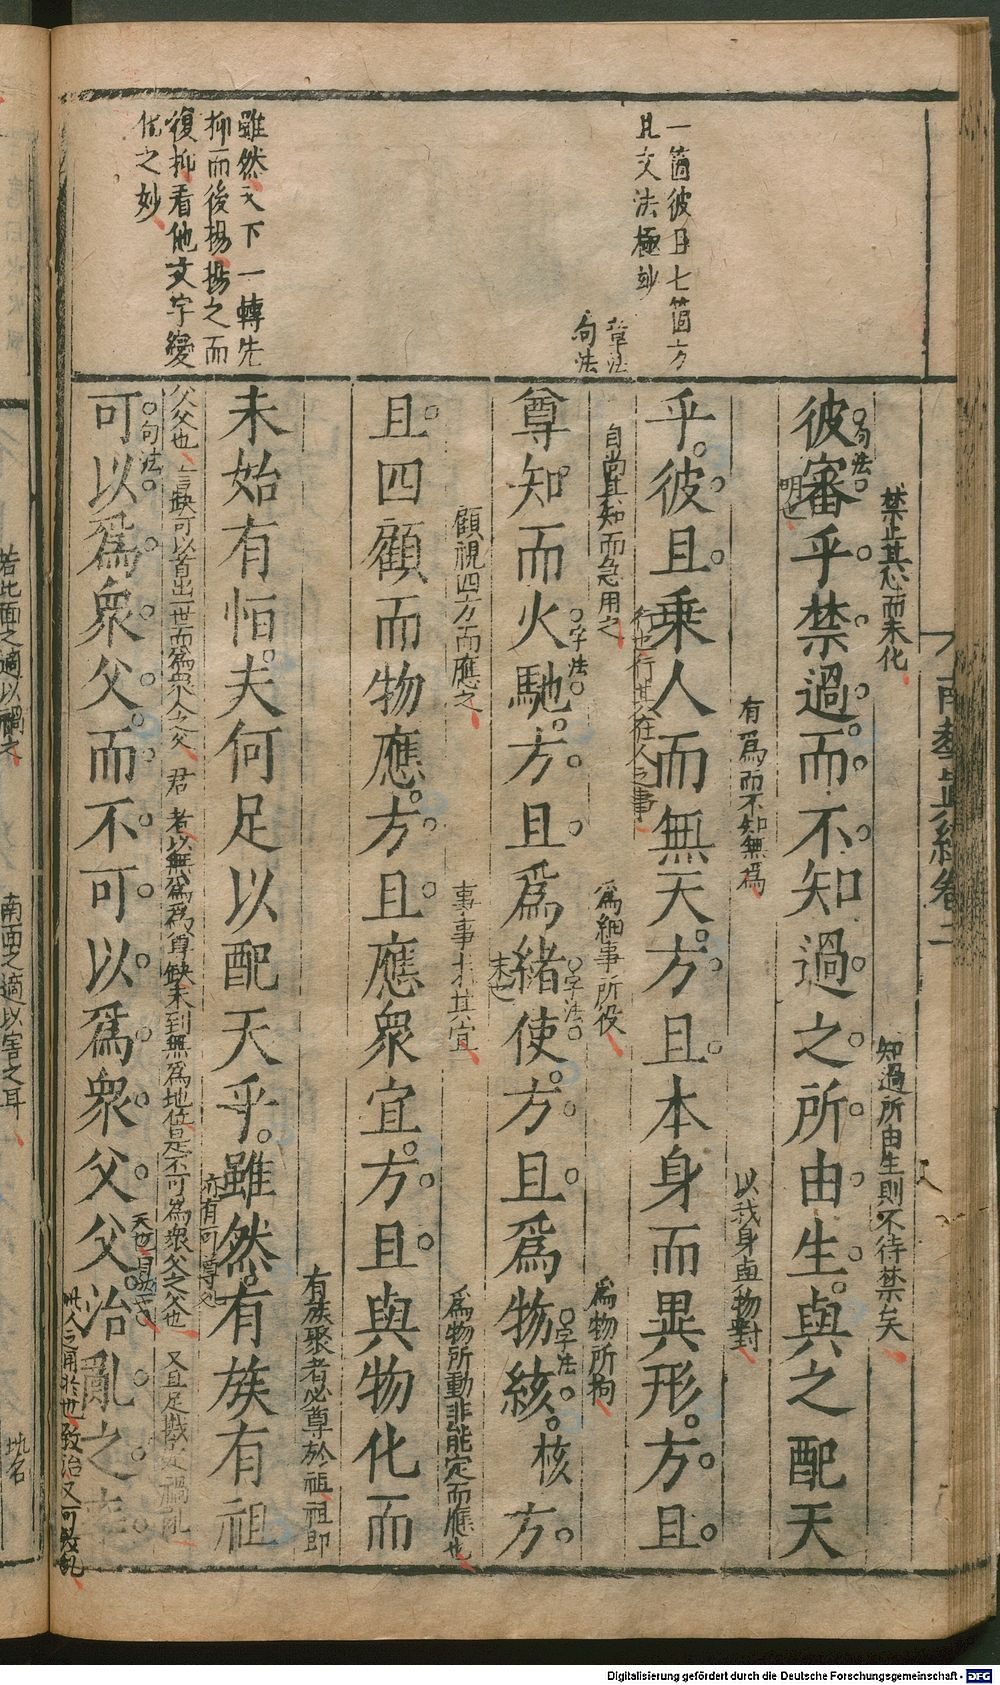 一箇彼且七箇方
且文法極妙
章法
句法
雖然文下一轉先
抑而後揚揚之而
復抑看他文字變
化之妙
南華真經卷二
禁止其心而未化
知過所由生則不待禁矣
句法
明也
彼審乎禁過而不知過之所由生與之配天
有為而不知無為
以我身與物對
乎彼且乗人而無天方且本身而異形方且
自尚其知而急用之
為細事所役
為物所拘
字法
字法
字法
尊知而火馳方且爲緒使方且爲物絯核方
末也
顧視四方而應之
事事求其宜
為物所動非能定而應也
且四顧而物應方且應衆宜方且與物化而
有族聚者必尊於祖祖即
未始有恒夫何足以配天乎雖然有族有祖
亦有可尊処
父父也
言缺可以首出一世而為众人之父
君者以無為為尊缺未到無為地位是不可為衆父之父也
又且足戡定禍亂
句法
可以爲衆父而不可以爲衆父父治亂之率
此人之用於世致治又可致亂
若北面之適以禍之
南面之適以害之耳
Digitalisierung gefördert durch die Deutsche Forschungsgemeinschaft - DFG